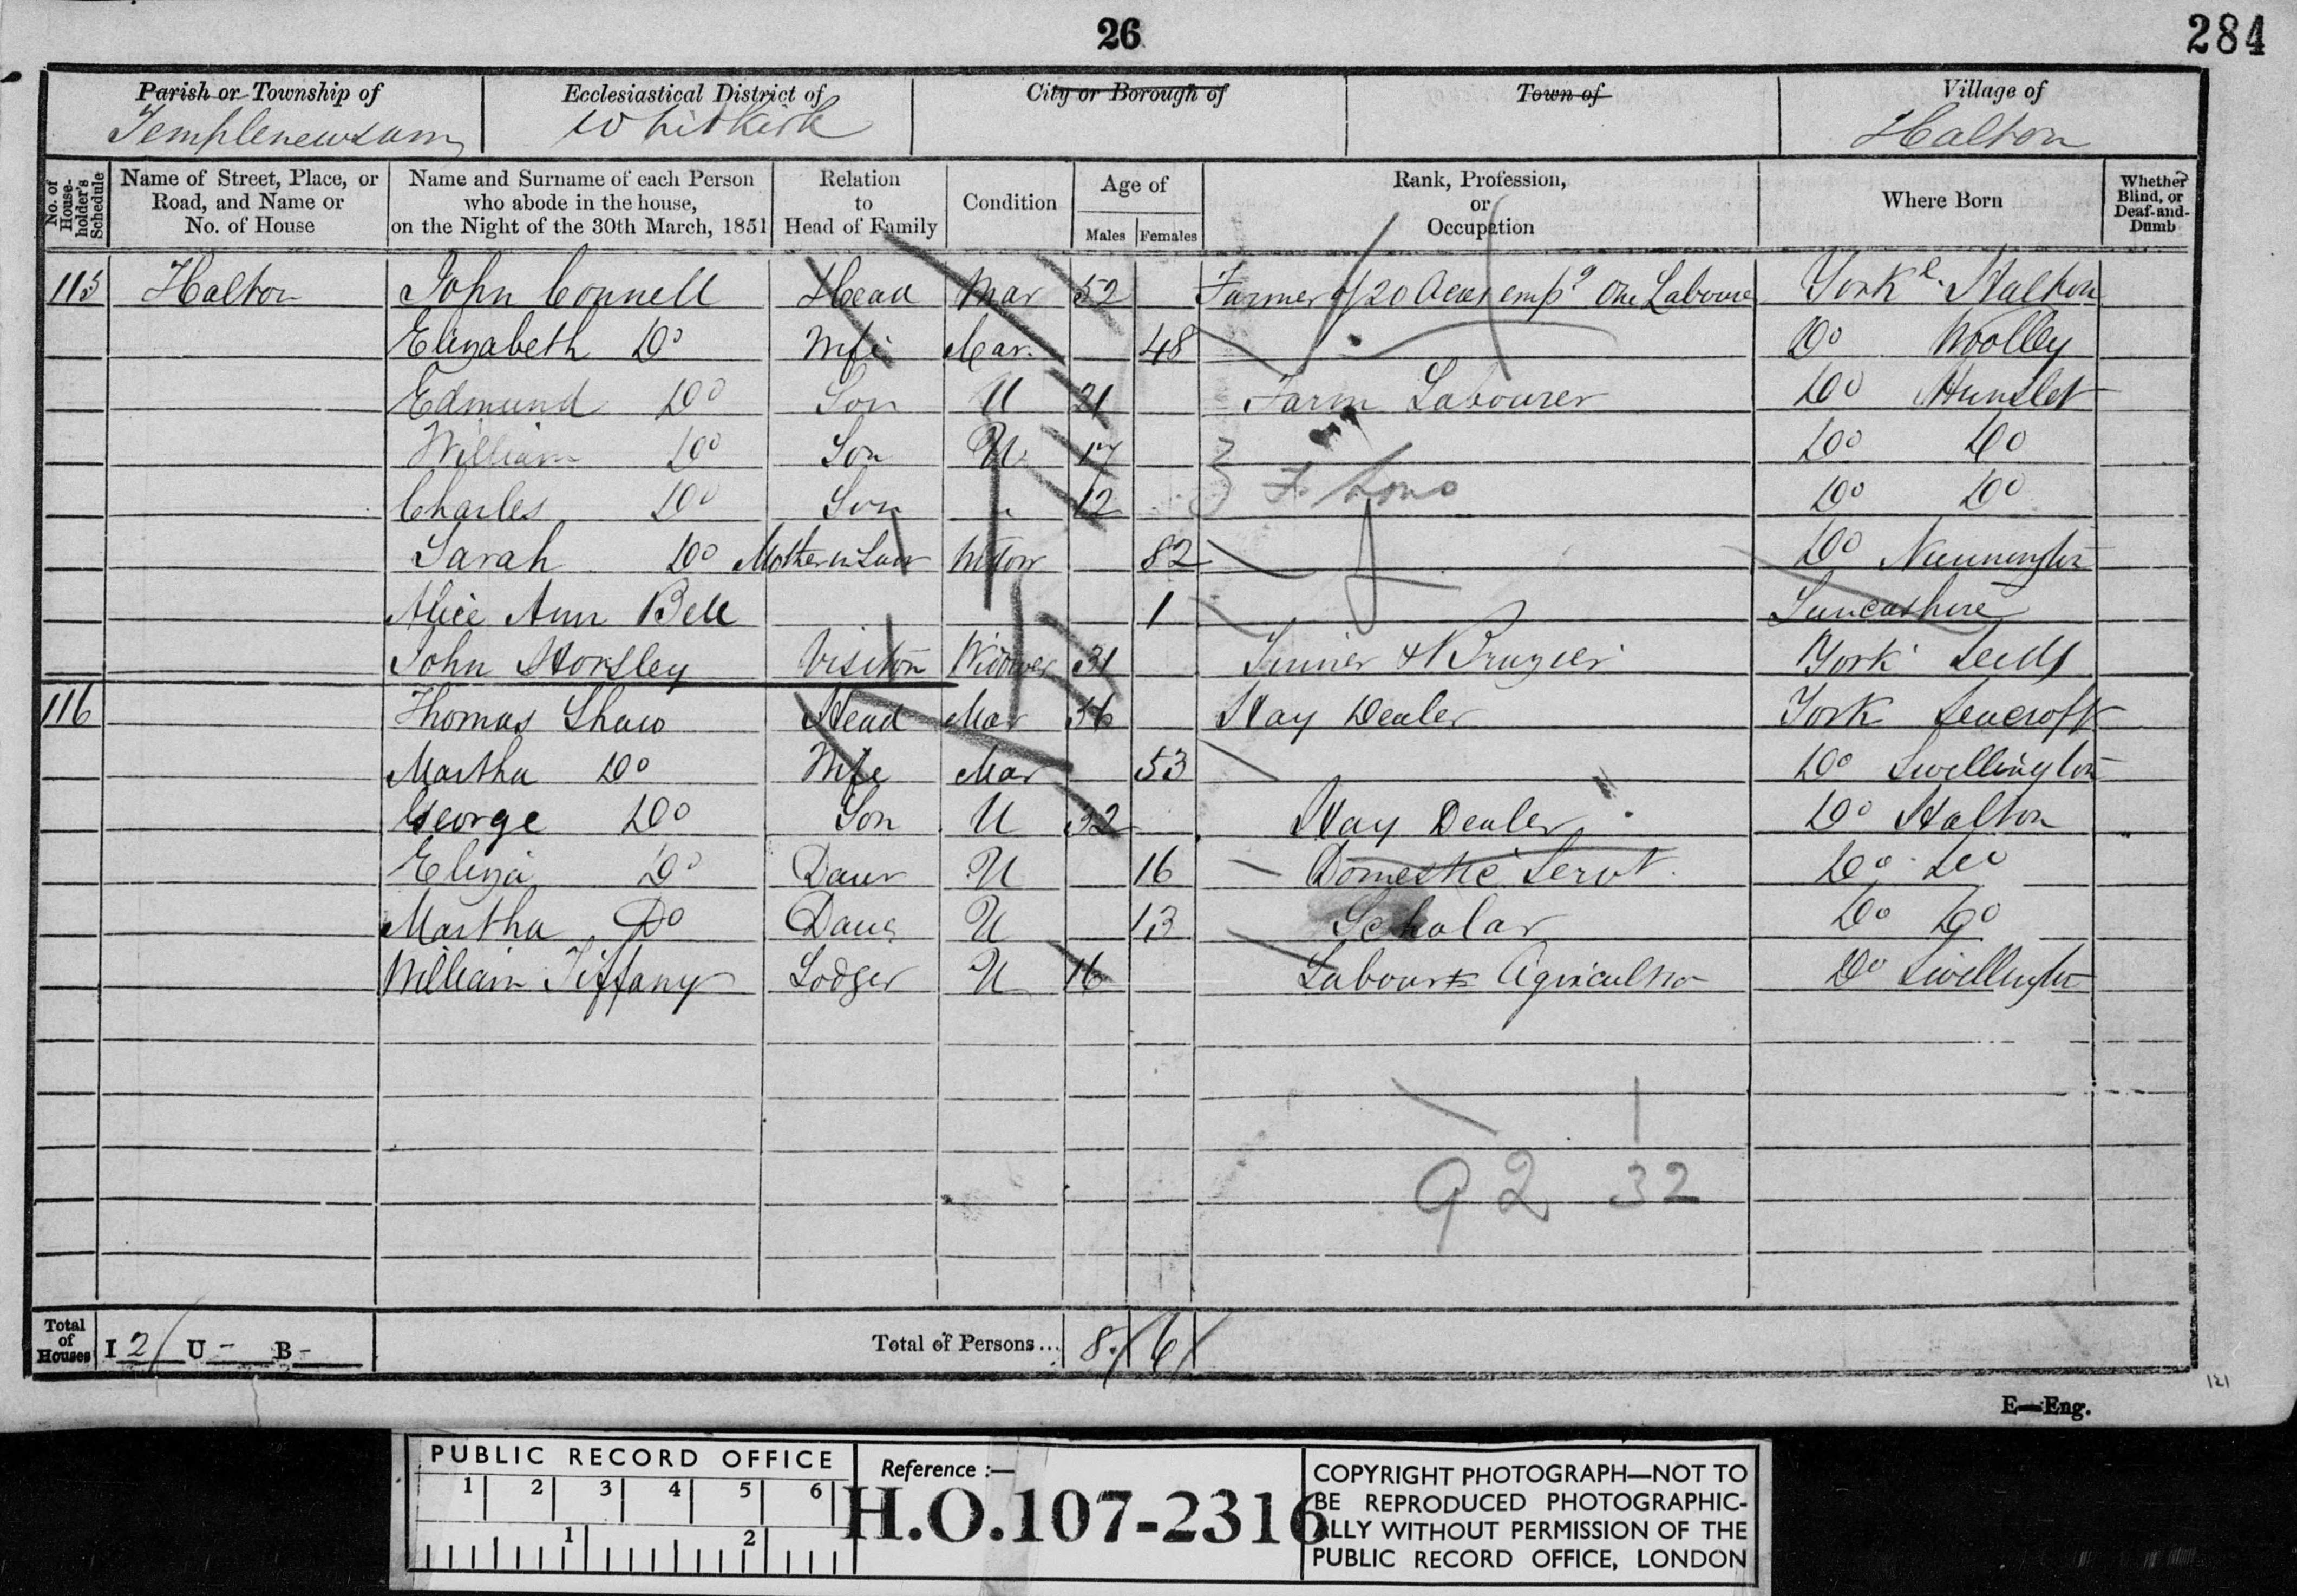 26
284
Parish or Township of Ecclesiastical District of City or Borough of Town of Village of
Templenewsam Whitkirk Halton
No. of House-holder's Schedule Name of Street, Place, or Road, and Name or No. of House Name and Surname of each Person who abode in the house, on the Night of the 30th March, 1851 Relation to Head of Family Condition Age of Males Females Rank, Profession, or Occupation Where Born Whether Blind, or Deaf-and-Dumb
115 Halton John Connell Head Mar 52 Farmer of 20 Acres emp.g One Labourer York Halton
Elizabeth Do Wife Mar. 48 Do Woolley
Edmund Do Son U 21 Farm Labourer Do Hunslet
William Do Son U 17 Do Do
Charles Do Son 12 F. Sons Do Do
Sarah Do Mother in Law Widow 82 Do Nunnington
Alice Ann Bell 1 Lancashire
John Horsley Visitor Widower 31 Tinner & Brazier York Leeds
116 Thomas Shaw Head Mar 56 Hay Dealer York Seacroft
Martha Do Wife Mar 53 Do Swellington
George Do Son U 32 Hay Dealer Do Halton
Eliza Do Daur U 16 Domestic Servt. Do Do
Martha Do Daur U 13 Scholar Do Do
William Tiffany Lodger U 16 Labour Do Swellington
92 32
Total of Houses I 2 U - B - Total of Persons... 8 6
121
E—Eng.
PUBLIC RECORD OFFICE
1 2 3 4 5 6
1 2
Reference :—
H.O.107-2316
COPYRIGHT PHOTOGRAPH—NOT TO
BE REPRODUCED PHOTOGRAPHIC-
ALLY WITHOUT PERMISSION OF THE
PUBLIC RECORD OFFICE, LONDON